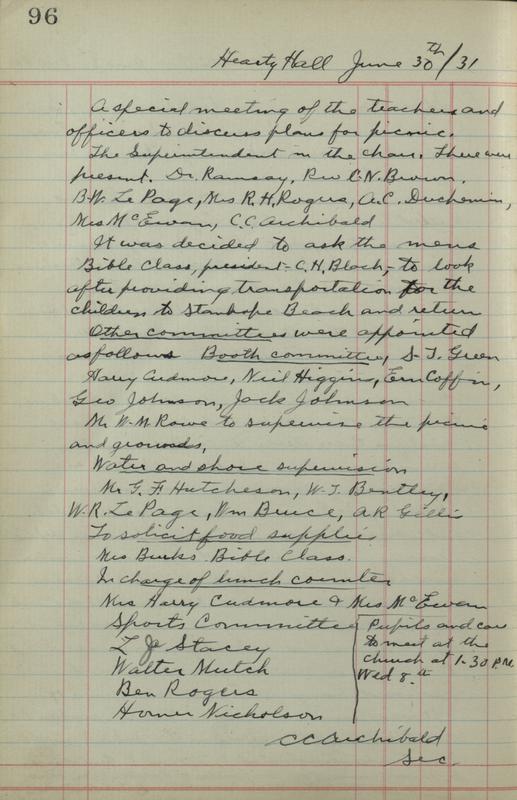 96
Hearty Hall June 30th/31
A special meeting of the teachers and
officers to discuss plans for picnic.
The Superintendent in the chair. There were
present, Dr. Ramsay, Rev C.N. Brown,
B.W. Le Page, Mrs R.H. Rogers, A.C. Duchemin,
Mrs McEwan, C.C. Archibald
It was decided to ask the mens
Bible Class, president - C.H. Black, - to look
after providing transportation for the
children to Stanhope Beach and return
Other committees were appointed
as follows Booth committee, S.T. Green
Harry Cudmore, Neil Higgins, Ern Coffin,
Geo Johnson, Jack Johnson
Mr W.M. Rowe to supervise the picnic
and grounds,
Water and shore supervision
Mr G.F. Hutcheson, W.T. Bentley,
W.R. Le Page, Wm Bruce, A R Gillis
To solicit food supplies
Mrs Burks Bible Class.
In charge of lunch counter
Mrs Harry Cudmore & Mrs McEwan
Sports Committee
L Stacey
Walter Mutch
Ben Rogers
Homer Nicholson
Pupils and cars
to meet at the
church at 1.30 P.M.
Wed 8th
CC Archibald
Sec.